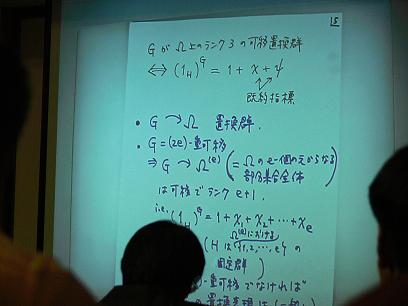 15
G が Ω 上のランク 3 の可移置換群
⇔ (1_H)^G = 1 + χ + ψ
既約指標
• G ↷ Ω 置換群.
• G = (2e)-重可移
⇒ G ↷ Ω^(e) (= Ω の e-個の元からなる
部分集合全体
は可移でランク e+1.
i.e. (1_H)^G = 1 + χ_1 + χ_2 + ⋯ + χ_e
Ω^(e) における
(H は {1,2,…,e} の
固定群)
-重可移でなければ"
置換表現は